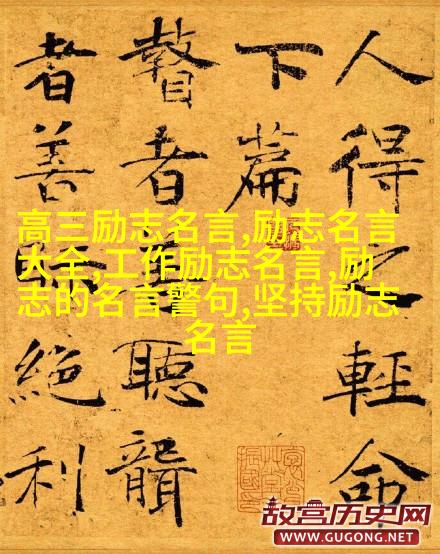 人得之輕命
下篇
瞽者善聽聾
者善視絕利
高三励志名言,励志名言
大全,工作励志名言,励
志的名言警句,坚持励志
名言
故宫历史网
WWW.GUGONG.NET